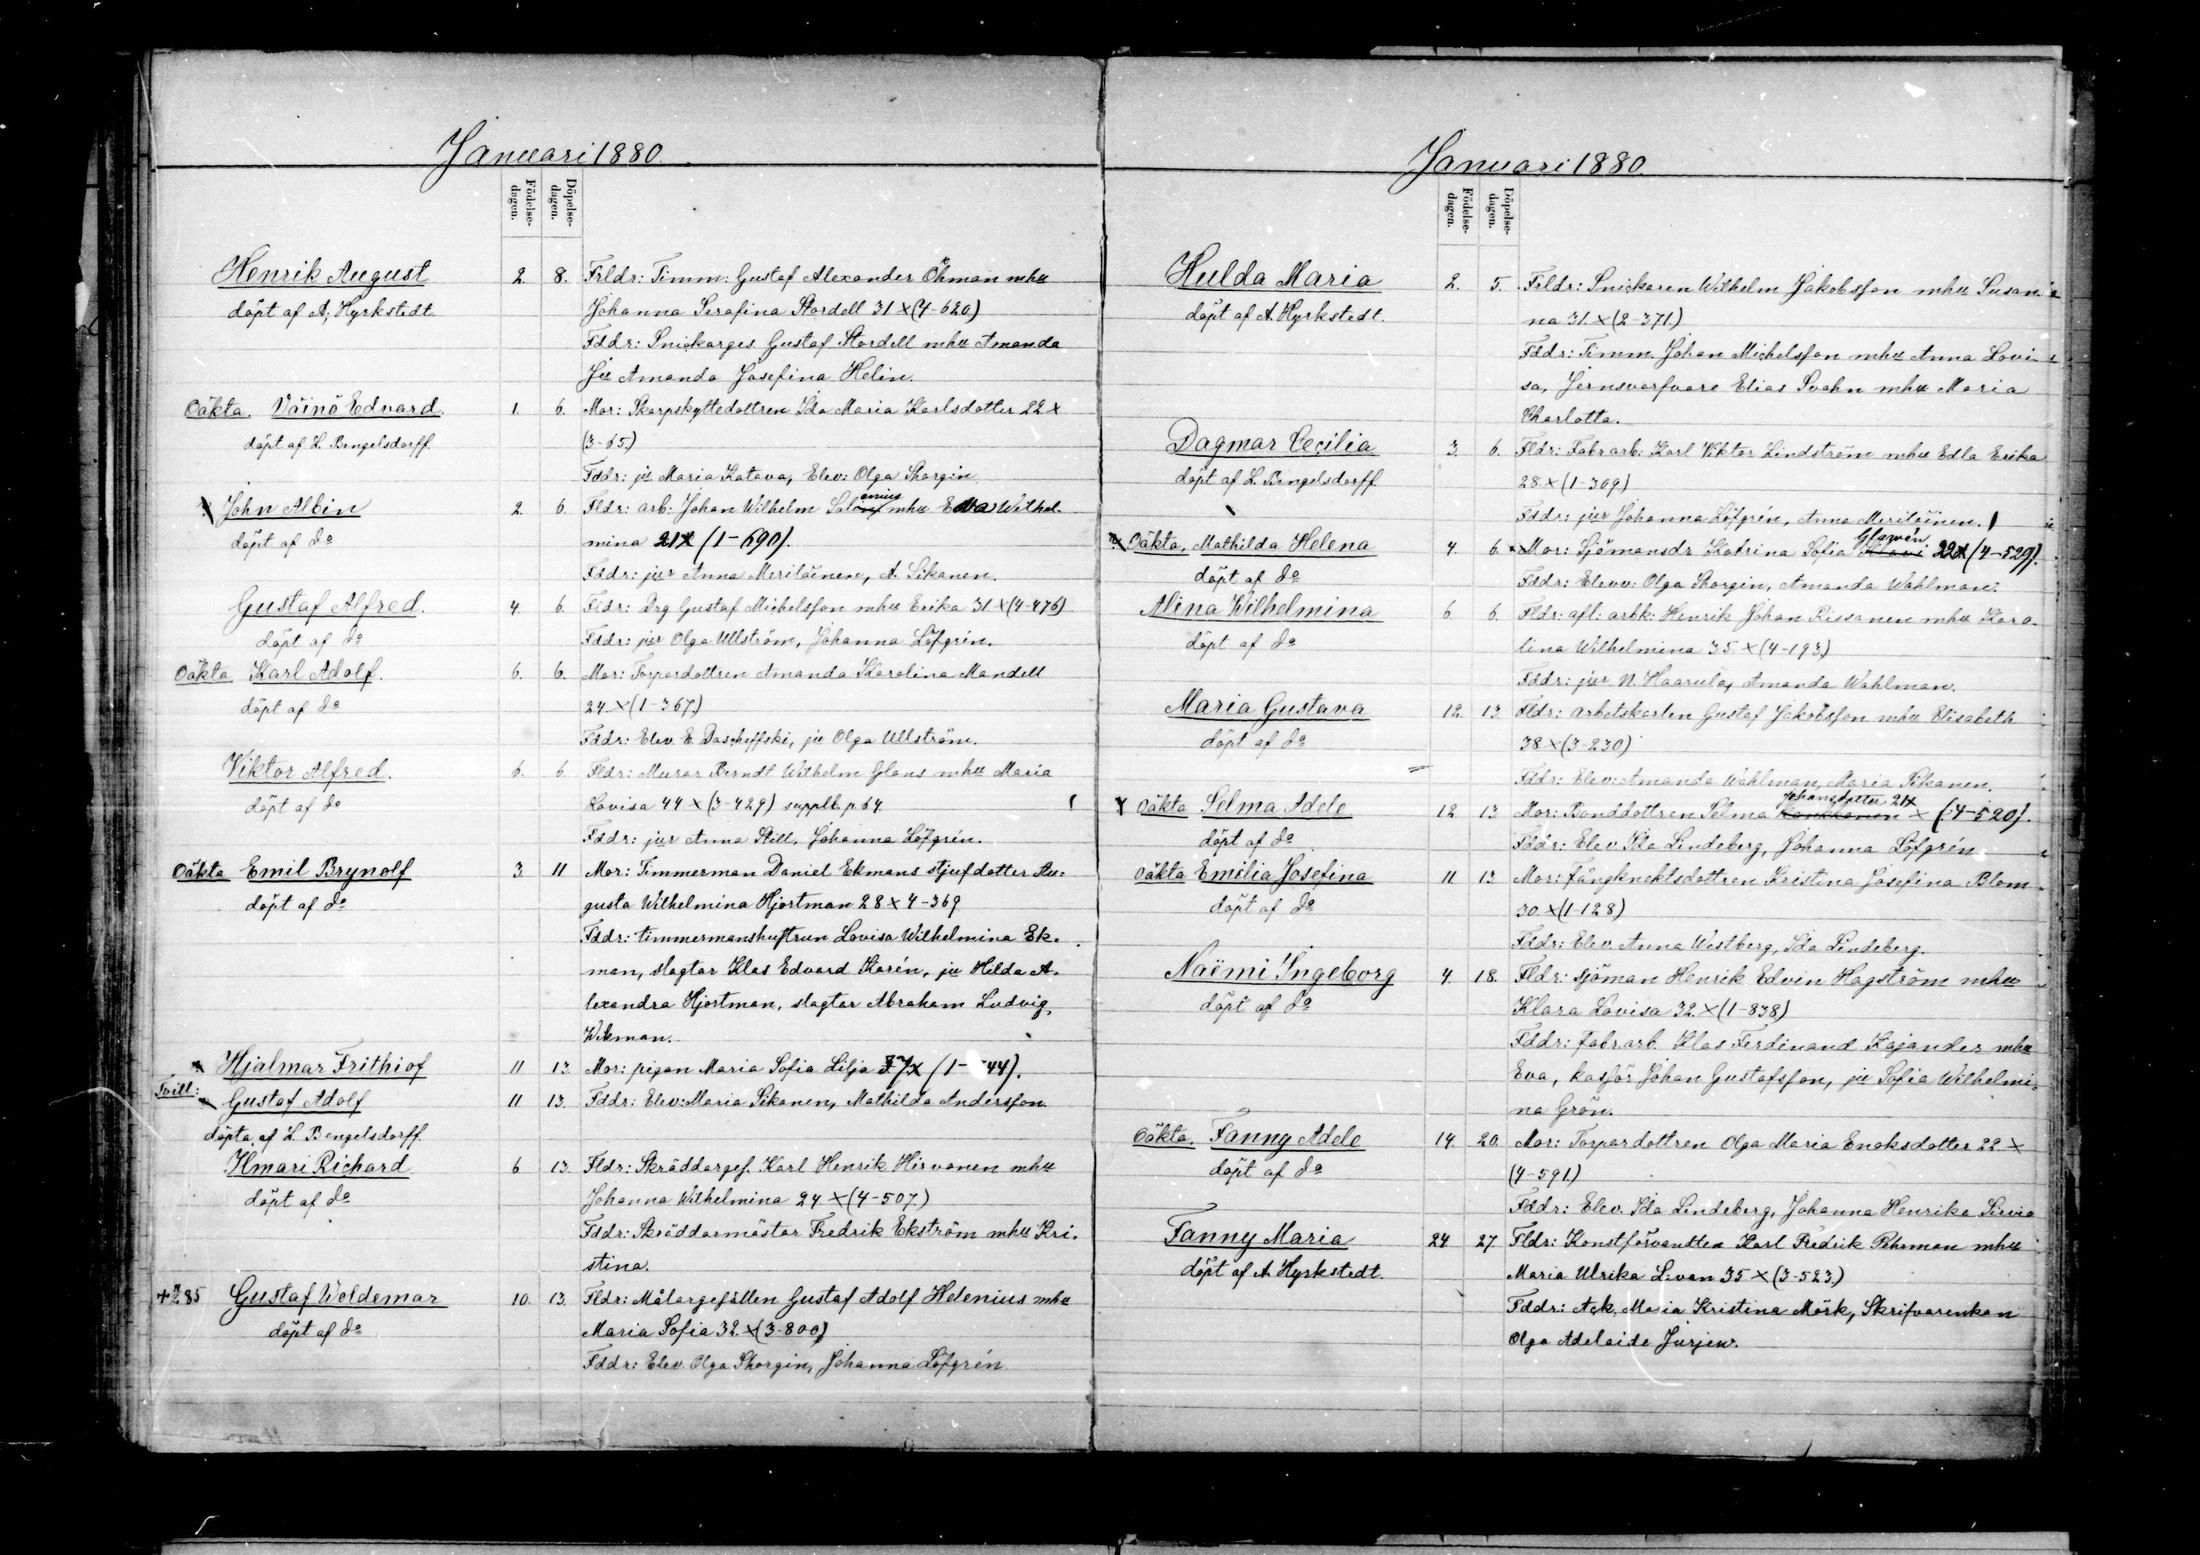 Januari 1880.
Födelse-dagen.
Döpelse-dagen.
Henrik August 2. 8. Frldr: Timm: Gustaf Alexander Öhman mhu
döpt af A. Hyrkstedt. Johanna Serafina Stordell 31 × (4-620)
Fddr: Snickarges Gustaf Stordell mhu Amanda
Ju Amanda Josefina Helin.
Oäkta. Väinö Edvard. 1. 6. Mor: Skarpskyttedottren Ida Maria Karlsdotter 22 ×
döpt af L. Bengelsdorff. (3-65.)
Fddr: ju Maria Katava, Elev: Olga Skorgin.
John Albin 2. 6. Fldr: arb: Johan Wilhelm Salenius mhu Edla Wilhel-
döpt af do mina 21× (1-690).
Fddr: jur Anna Meriläinen, A. Sikanen.
Gustaf Alfred. 4. 6. Fldr: Drg Gustaf Michelsson mhu Erika 31 × (4-476)
döpt af do Fddr: jur Olga Ullström, Johanna Löfgrén.
Oäkta Karl Adolf. 6. 6. Mor: Torpardottren Amanda Karolina Mandell
döpt af do 24. × (1-367.)
Fddr: Elev. E. Dascheffski, ju Olga Ullström.
Viktor Alfred. 6. 6. Fldr: Murar Berndt Wilhelm Glans mhu Maria
döpt af do Lovisa 44 × (3-429) supplb. p. 64
Fddr: jur Anna Still, Johanna Löfgrén.
Oäkta Emil Brynolf 3. 11 Mor: Timmerman Daniel Ekmans stjufdotter Au-
döpt af do gusta Wilhelmina Hjortman 28 × 4-369
Fddr: timmermanshustrun Lovisa Wilhelmina Ek-
man, slagtar Klas Edvard Karén, ju Hilda A-
lexandra Hjortman, slagtar Abraham Ludvig
Wikman.
Hjalmar Frithiof 11 13. Mor: pigan Maria Sofia Lilja 37× (1- 44).
Tvill: Gustaf Adolf 11 13. Fddr: Elev: Maria Sikanen, Mathilda Andersson.
döpta af L. Bengelsdorff.
Ilmari Richard 6 13. Fldr: Skräddargef. Karl Henrik Hirvonen mhu
döpt af do Johanna Wilhelmina 24 × (4-507.)
Fddr: Skräddarmästar Fredrik Ekström mhu Kri-
stina.
+ 285 Gustaf Woldemar 10. 13. Fldr: Målargesällen Gustaf Adolf Helenius mhu
döpt af do Maria Sofia 32. × (3-800)
Fddr: Elev. Olga Skorgin, Johanna Löfgrén
Januari 1880.
Födelse-dagen.
Döpelse-dagen.
Hulda Maria 2. 5. Frldr: Snickaren Wilhelm Jakobsson mhu Susan-
döpt af A. Hyrkstedt. na 31. × (2-371.)
Fddr: Timm. Johan Michelsson mhu Anna Lovi-
sa, Jernsvarfvare Elias Svahn mhu Maria
Charlotta.
Dagmar Cecilia 3. 6. Fldr: Fabr.arb: Karl Viktor Lindström mhu Edla Erika
döpt af L. Bengelsdorff 28 × (1-309.)
Fddr: jur Johanna Löfgrén, Anna Meriläinen.
Oäkta, Mathilda Helena 4. 6. Mor: Sjömansdr Katrina Sofia Glawén 22× (4-529).
döpt af do Fddr: Elevv: Olga Skorgin, Amanda Wahlman.
Alina Wilhelmina 6. 6. Fldr: afl: arbk: Henrik Johan Rissanen mhu Karo-
döpt af do lina Wilhelmina 35 × (4-193.)
Fddr: jur N. Haarula, Amanda Wahlman.
Maria Gustava 12. 13. Fldr: arbetskarlen Gustaf Jakobsson mhu Elisabeth
döpt af do 38 × (3-230)
Fddr: Elev: Amanda Wahlman, Maria Sikanen.
Oäkta Selma Adele 12. 13. Mor: Bonddottren Selma Johansdotter 21× × (4-520).
döpt af do Fddr: Elev. Ida Lindeberg, Johanna Löfgrén
Oäkta Emilia Josefina 11 13 Mor: Fångknektsdottren Kristina Josefina Blom
döpt af do 30. × (1-128)
Fddr: Elev. Anna Westberg, Ida Lindeberg.
Naëmi Ingeborg 4. 18. Fldr: sjöman Henrik Edvin Hagström mhu
döpt af do Klara Lovisa 32. × (1-838)
Fddr: fabr.arb. Klas Ferdinand Kajander mhu
Eva, kasför Johan Gustafsson, ju Sofia Wilhelmi-
na Grön.
Oäkta. Fanny Adele 14. 20. Mor: Torpardottren Olga Maria Enoksdotter 22 ×
döpt af do (4-591.)
Fddr: Elev. Ida Lindeberg, Johanna Henrika Sirvio
Fanny Maria 24 27. Fldr: Konstförvandten Karl Fredrik Pehrman mhu
döpt af A. Hyrkstedt. Maria Ulrika Levan 35 × (3-523.)
Fddr: Ack. Maria Kristina Mörk, Skrifvarenkan
Olga Adelaide Jurjew.